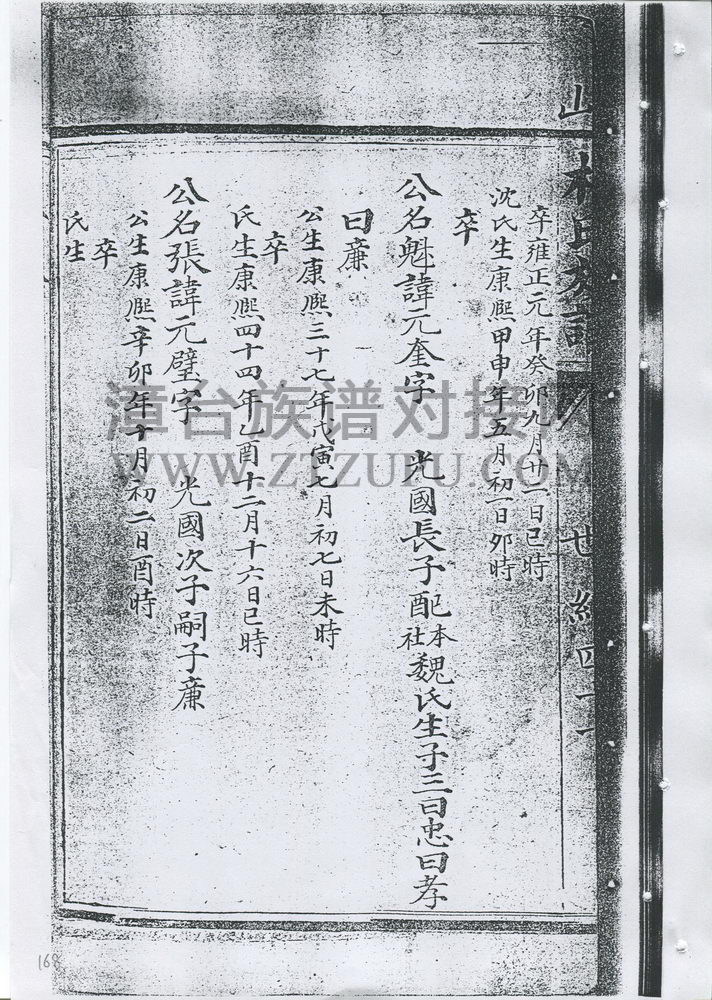 山林氏族譜
世紀四十
卒雍正元年癸卯九月廿一日巳時
沈氏生康熙甲申年五月初一日卯時
卒
公名魁諱元奎字 光國長子配本社魏氏生子三曰忠曰孝
曰廉
公生康熙三十七年戊寅七月初七日未時
卒
氏生康熙四十四年乙酉十二月十六日巳時
公名張諱元璧字 光國次子嗣子廉
公生康熙辛卯年十月初二日酉時
卒
氏生
漳台族谱对接
WWW.ZTZUPU.COM
168